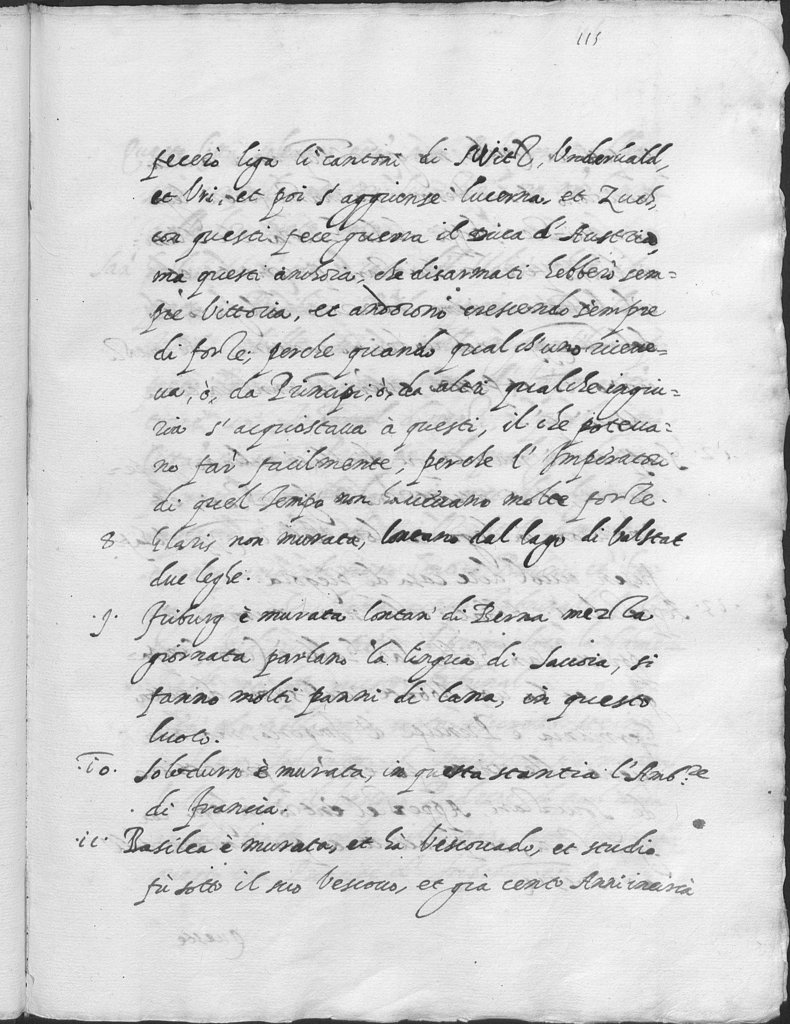 115
fecero liga li cantoni di Switz, Undervald,
et Uri, et poi s'aggiunse lucerna, et Zuch,
con questi fece guerra il Duca d'Austria,
ma questi anchora, che disarmati hebbero sem=
pre Vittoria, et andorono crescendo sempre
di forze; perche quando qual ch'uno riceve=
va, ò, da Principi, ò, da altri qualche ingiu=
ria s'acquostava à questi, il che poteva=
no far facilmente, perche l'Imperatori
di quel tempo non havevano molte forze.
8. Glaris non murata, lontano dal lago di balstat
due leghe.
.9. Friburg è murata lontan' di Berna mezza
giornata parlano la lingua di Savoia, si
fanno molti panni di lana, in questo
luoco.
.10. Solodurn è murata, in questa stantia l'Amb.re
di Francia.
.11. Basilea è murata, et hà Vescovado, et studio
fù sotto il suo Vescovo, et già cento Anni in